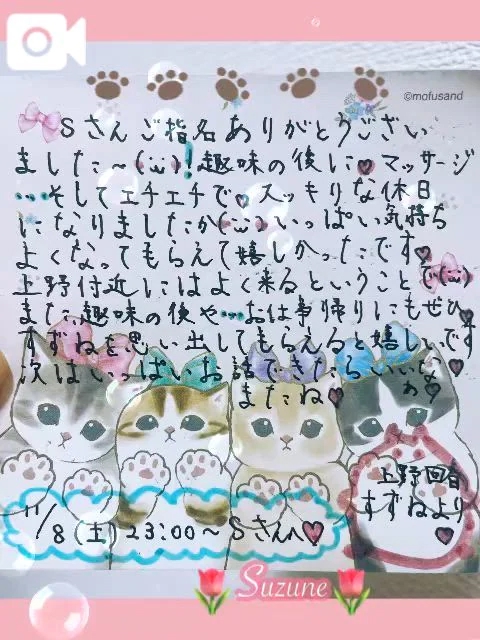 ©mofusand
Sさんご指名ありがとうござい
ました〜(ü)!趣味の後に♥マッサージ
…そしてエチエチで♥スッキリな休日
になりましたか(ü)いっぱい気持ち
よくなってもらえて嬉しかったです♥
上野付近にはよく来るということで(ü)
また趣味の後や…お仕事帰りにもぜひ
すずねを思い出してもらえると嬉しいです
次はいっぱいお話できたらいいな♥
またね♥
上野回春
すずねより
11/8(土)23:00〜Sさんへ♥
Suzune